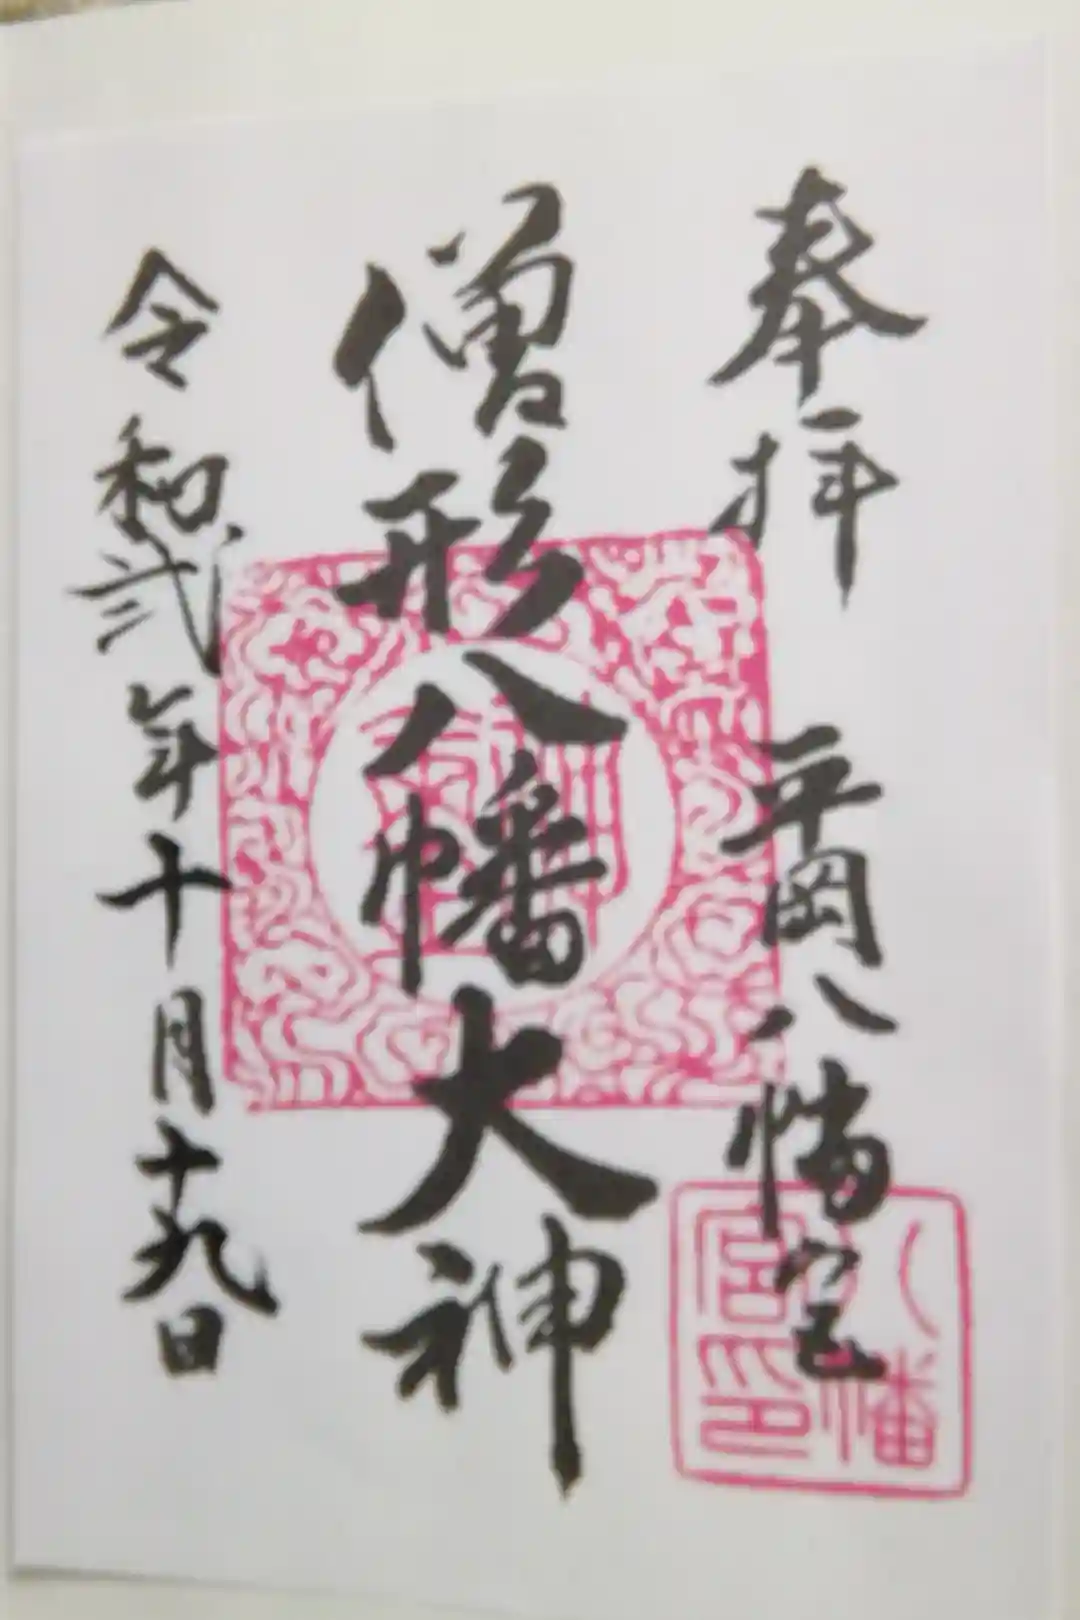 奉拝 平岡八幡宮
僧形八幡大神
令和弐年十月十九日
八幡宮印